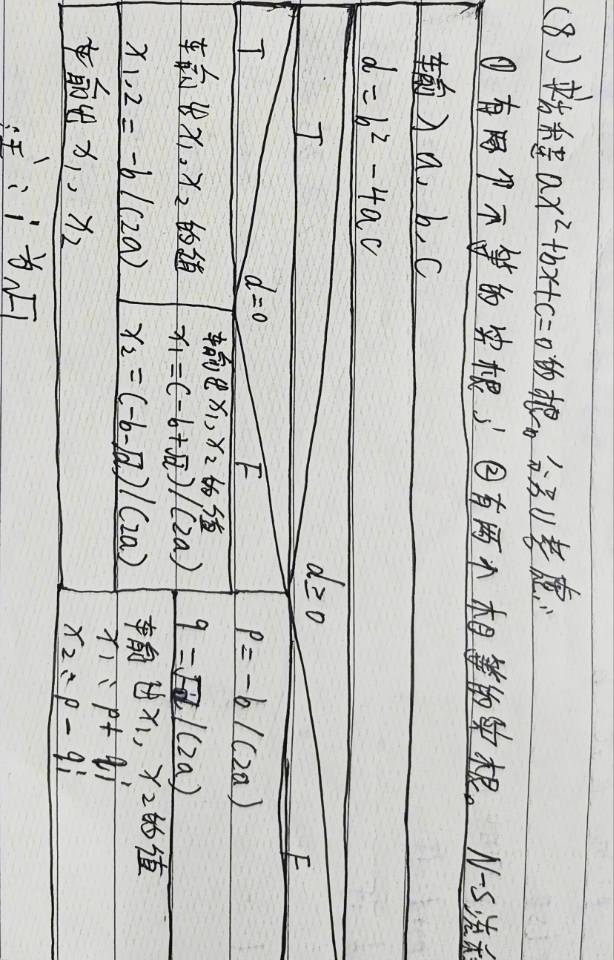 (8) 求方程 ax²+bx+c=0 的根。分别考虑:
① 有两个不等的实根; ② 有两个相等的实根。 N-S流程
输入 a, b, c
d = b² - 4ac
d≥0
T F
T d=0 F
输出 x₁, x₂ 的值
x₁,₂ = -b/(2a)
输出 x₁, x₂ 的值
x₁=(-b+√d)/(2a)
x₂=(-b-√d)/(2a)
输出 x₁, x₂
P = -b/(2a)
q = /(2a)
输出 x₁, x₂的值
x₁: p+qi
x₂: p-qi
注: i 为 √-1